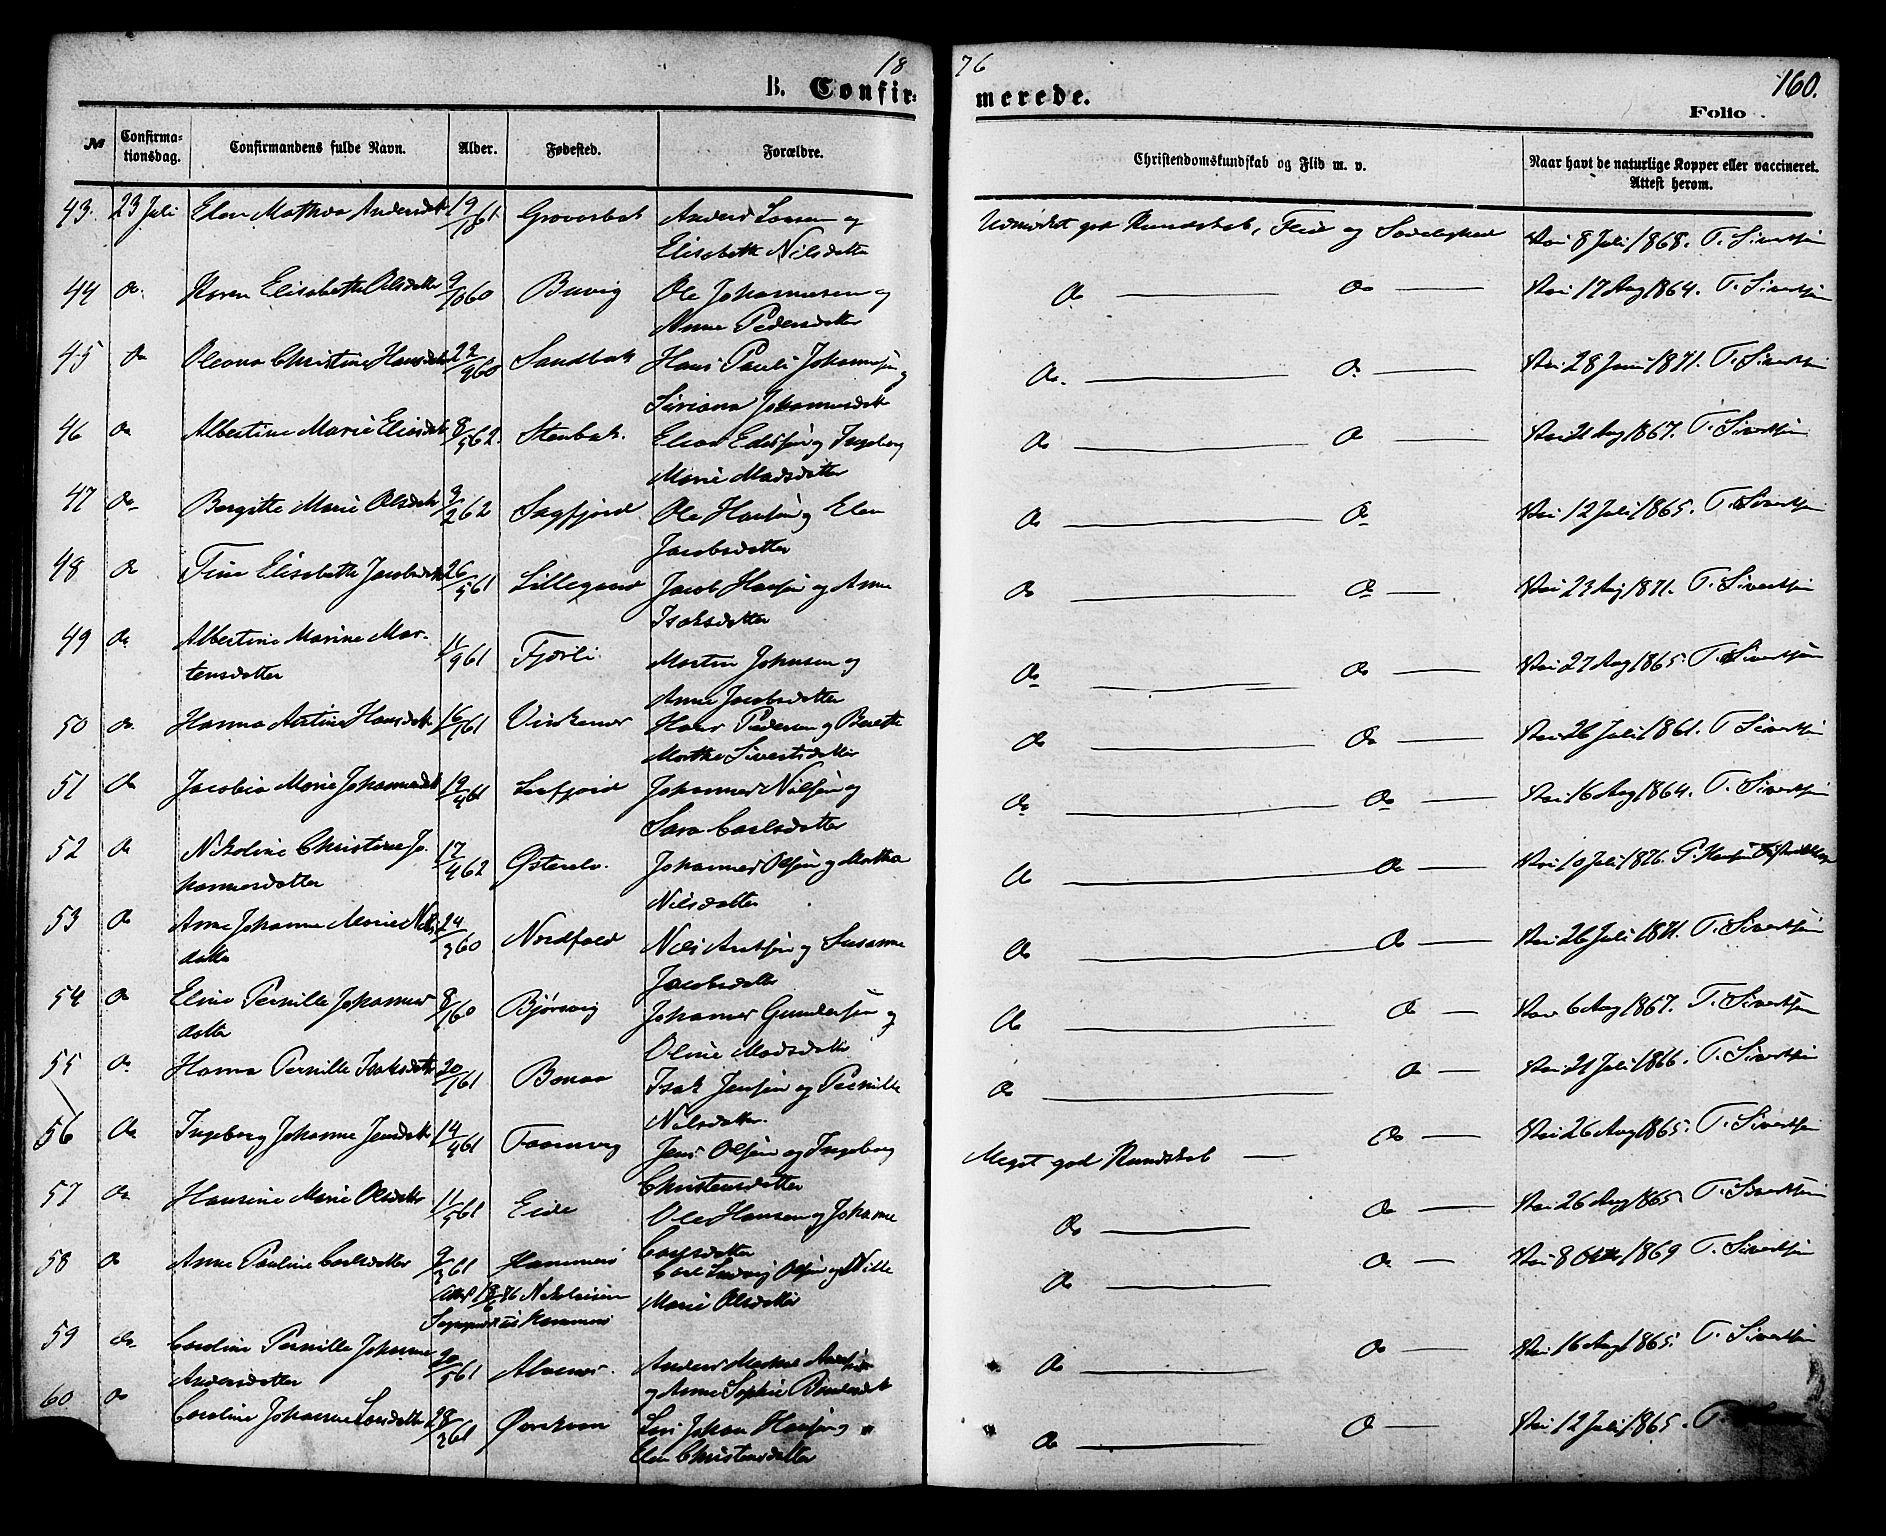 18 76
160.
B. Confirmerede.
Folio
№ Confirmationsdag. Confirmandens fulde Navn. Alder. Fødested. Forældre. Christendomskundskab og Flid m. v. Naar havt de naturlige Kopper eller vaccineret. Attest herom.
43. 23 Juli Elen Mathea Andersdtr 19/61 Anders Larsen og Udmærket god Kundskab, Flid og Sædelighed Vac 8 Juli 1868. T. Sivertsen
Elisabeth Nilsdatter
44 Do Karen Elisabeth Olsdatter 9/10 60 Buvig Ole Johannesen og Do Do Vac 17 Aug 1864. T. Sivertsen
Anne Pedersdatter
45 Do Oleana Christine Hansdtr 22/9 60 Sandbak Hans Pauli Johannessen og Do Do Vac 28 Juni 1871. T. Sivertsen
Siriana Johannesdtr
46 Do Albertine Marie Eliasdtr 8/5 62 Stenbak. Elias og Ingeborg Do Do Vac 21 Aug 1867. T. Sivertsen
Marie Madsdatter
47 Do Bergitte Marie Olsdtr 3/2 62 Sagfjord Ole Hansen og Elen Do Do Vac 12 Juli 1865. T. Sivertsen
Jacobsdatter
48 Do Tina Elisabeth Jacobsdtr 26/5 61 Lillegaard Jacob Hansen og Anne Do Do Vac 23 Aug 1871. T. Sivertsen
Isaksdatter
49 Do Albertine Marine Mar-
tensdatter 11/9 61 Fjærli Morten Johnsen og Do Do Vac 27 Aug 1865. T. Sivertsen
Anne Jacobsdatter
50 Do Hanna Hansdtr 16/61 Hans Pedersen og Berethe Do Do Vac 26 Juli 1861. T. Sivertsen
Marthe Sivertsdatter
51 Do Jacobia Marie Johannesdtr 19/4 61 Johannes Nilsen og Do Do Vac 16 Aug 1864. T. Sivertsen
Sara Carlsdatter
52 Do Nikoline Christine Jo-
hannesdatter 17/4 62 Østerelv. Johannes Olsen og Martha Do Do Vac 10 Juli 1876. P. Hansen
Nilsdatter
53 Do Anne Johanne Marie Nils-
datter 24/3 60 Nordfold Nils og Susanne Do Do Vac 26 Juli 1871. T. Sivertsen
Jacobsdatter
54 Do Eline Pernille Johannes
datter 8/60 Bjørsvig Johannes Gundersen og Do Do Vac 6 Aug 1867. T. Sivertsen
Oline Madsdatter
55 Do Hanna Pernille Isaksdtr 20/61 Bonaa Isak Jensen og Pernille Do Do Vac 21 Juli 1866. T. Sivertsen
Nilsdatter.
56 Do Ingeborg Johanne Jensdtr 14/4 61 Jens Olsen og Ingeborg Meget god Kundskab Do Vac 26 Aug 1865. T. Sivertsen
Christensdatter
57 Do Hansine Marie Olsdatter 11/5 61 Eide Ole Hansen og Johanne Do Do Vac 26 Aug 1865. T. Sivertsen
Carlsdatter
58 Do Anne Pauline Carlsdatter 9/3 61 Hammerø Carl Ludvig Olsen og Nille Do Do Vac 8 Octb 1869 T. Sivertsen
Marie Olsdatter
59 Do Caroline Pernille Johanne
Andersdatter 30/5 61 Alvenes. Anders Do Do Vac 16 Aug 1865. T. Sivertsen
og Anne Sophie
60 Do Caroline Johanne Larsdatter 28/2 61 Johan Hansen og Do Do Vac 12 Juli 1865. T.
Elen Christensdatter